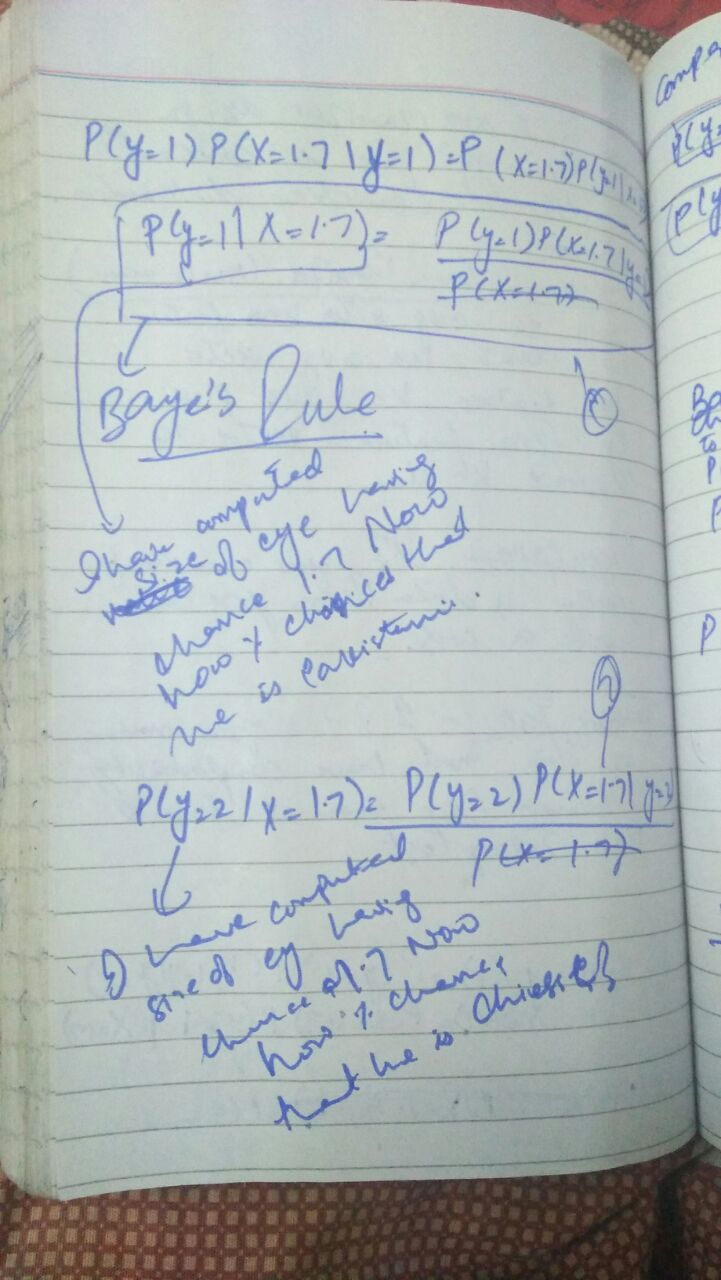 P(y=1) P(X=1.7 | y=1) = P(X=1.7) P(y=1|x
P(y=1 | X=1.7) = P(y=1) P(X=1.7 | y=
P(X=1.7)
Baye's Rule
I have computed
size of eye having
chance 1.7 Now
how % chances that
he is
P(y=2 | X=1.7) = P(y=2) P(X=1.7 | y=2
P(X=1.7)
I have computed
size of ey having
chance 1.7 Now
how % chances
that he is
Comp
P(y=
P(y
Ba
To
P
P
P